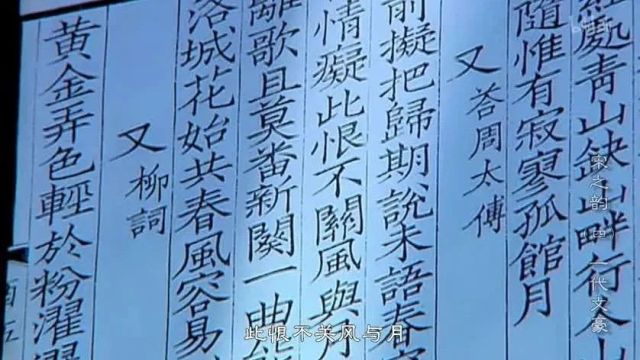 紅處青山缺山畔行人山
隨惟有寂寥孤館月
又 荅周太傅
前擬把歸期說未語春容
情癡此恨不關風與月
離歌且莫番新闋一曲能
落城花始共春風容易
又 柳詞
黃金弄色輕於粉濯濯
宋之韵(四) 一代文豪
此恨不关风与月